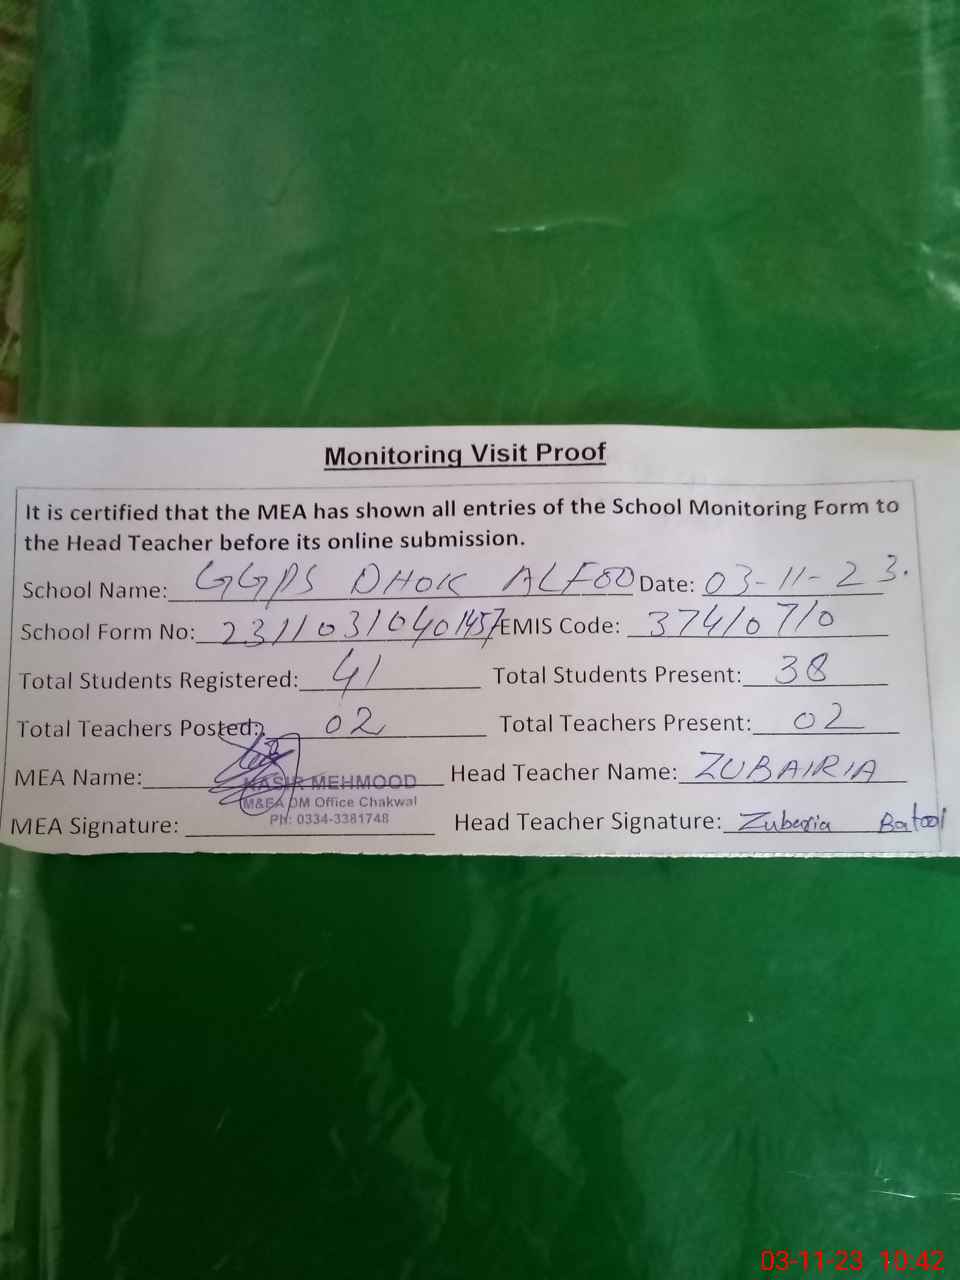 Monitoring Visit Proof
It is certified that the MEA has shown all entries of the School Monitoring Form to
the Head Teacher before its online submission.
School Name: GGPS DHOK ALFOO Date: 03-11-23.
School Form No: 23110310401457 EMIS Code: 37410710
Total Students Registered: 41 Total Students Present: 38
Total Teachers Posted: 02 Total Teachers Present: 02
MEA Name: NASIR MEHMOOD Head Teacher Name: ZUBAIRIA
M&EA DM Office Chakwal
MEA Signature: Ph: 0334-3381748 Head Teacher Signature: Zubaria Batool
03-11-23 10:42